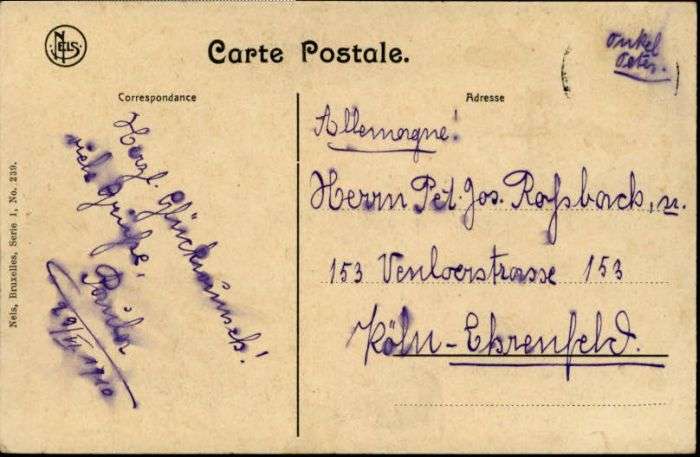 NELS
Carte Postale.
Onkel
Peter.
Correspondance
Herzl. Glückwunsch!
viele Grüße,
1910
Adresse
Allemagne!
Herrn Pet. Jos. Roßbach, u.
153 Venloerstrasse 153
Köln-Ehrenfeld.
Nels, Bruxelles, Serie 1, No. 239.